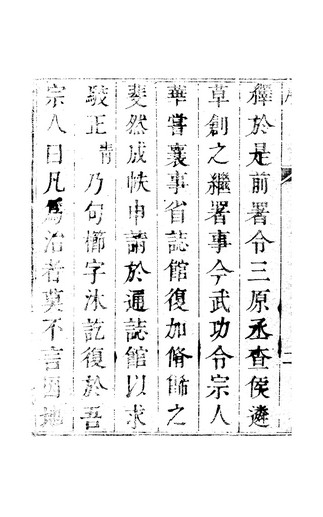 繹於是前署令三原丞查侯遴
草創之繼署事今武功令宗人
華嘗襄事省誌館復加脩飾之
斐然成帙申請於通誌館以求
駮正青乃句櫛字沐訖復於吾
宗人曰凡爲治者莫不言因地